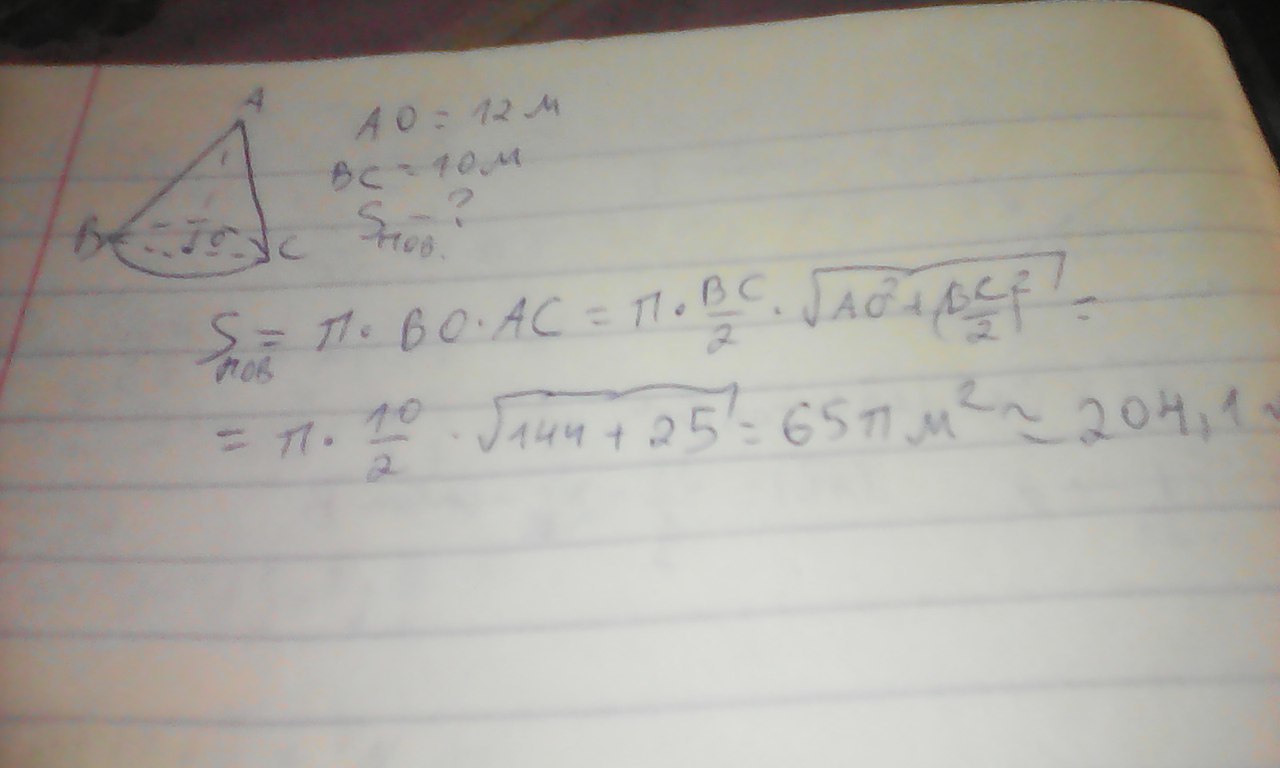 A
AO = 12 м
BC = 10 м
B O C
Sпов. - ?
Sпов = П · BO · AC = П · BC/2 · √(AO² + (BC/2)²) =
= П · 10/2 · √(144 + 25) = 65П м² ≈ 204,1